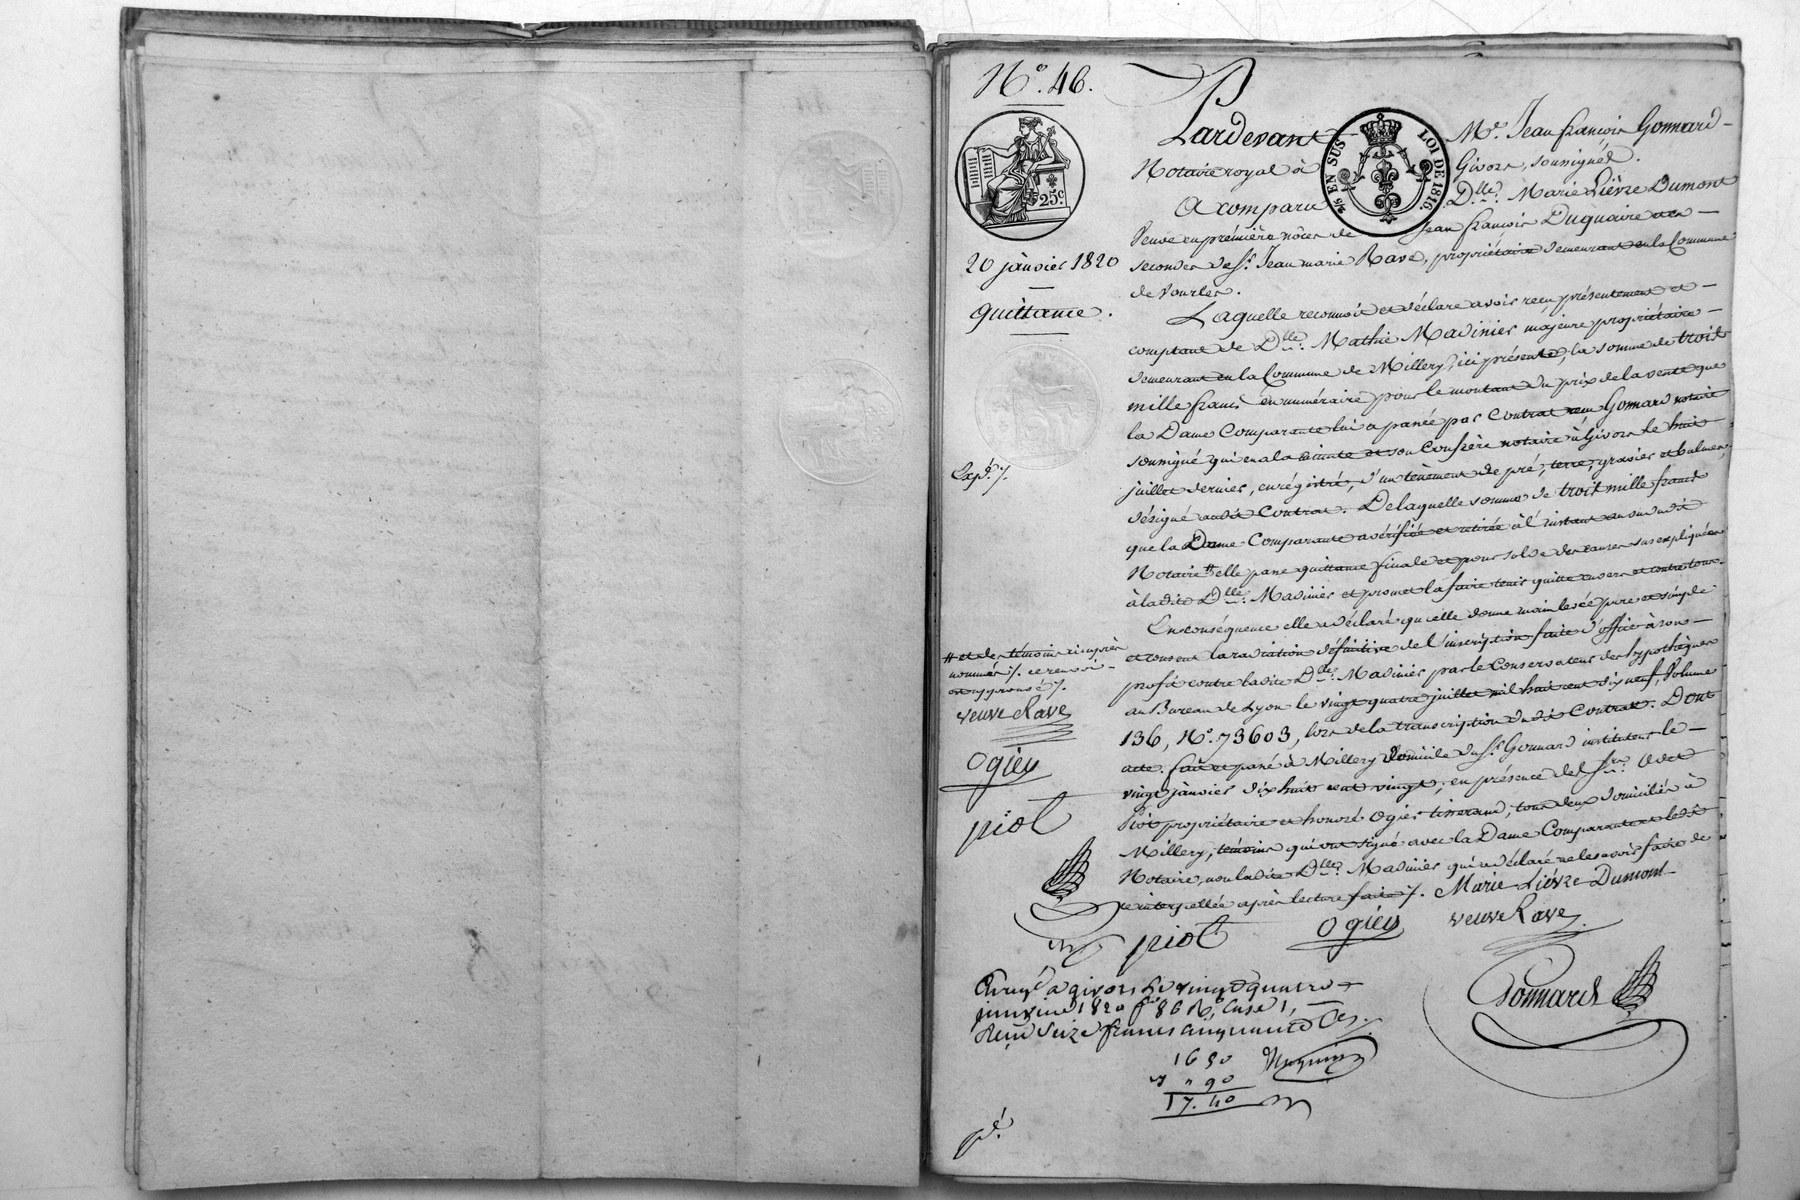 N.° 46.
25.c
2/5 EN SUS LOI DE 1816.
20 janvier 1820
quittance.
Pardevant M.e Jean françois Gonnard
Notaire royal à Givors, soussigné.
A comparu D.lle Marie Liévre Dumont
Veuve en première nôces de Jean françois Duquaire et en
secondes de S.r Jean marie Rave, propriétaire demeurant en la Commune
de Vourles.
Laquelle reconnoit et déclare avoir reçu présentement et
comptant de D.lle Mathie Madinier majeure propriétaire
demeurant en la Commune de Millery, ici présente, la somme de trois
mille francs en numéraire pour le montant du prix de la vente que
la Dame Comparante lui a passée par Contrat reçu Gonnard notaire
soussigné qui en a la minute et son Confrère notaire à Givors le huit
juillet dernier, enrégistré, d'un tènement de pré, terre, gravier et
désigné audit Contrat. De laquelle somme de trois mille francs
que la Dame Comparante a vérifiée et retirée à l'instant au vu dudit
Notaire # elle passe quittance finale et pour solde des causes sus expliquées
à ladite D.lle Madinier et promet la faire tenir quitte envers et contre tous.
En conséquence elle a déclaré qu'elle donne main levée pure et simple
et consent la radiation définitive de l'inscription faite d'office à son
profit contre ladite D.lle Madinier par le Conservateur des hypothèques
au Bureau de Lyon le vingt quatre juillet mil huit cent dix neuf, Volume
136, N.° 73603, lors de la transcription dudit Contrat. Dont
acte. fait et passé à Millery domicile du S.r Gonnard instituteur le
vingt janvier dix huit cent vingt, en présence de S.rs Odet
Piot propriétaire et honoré Ogier tisserand, tous deux domiciliés à
Millery, témoins qui ont signé avec la Dame Comparante et ledit
Notaire, non ladite D.lle Madinier qui a déclaré ne le savoir faire de
ce interpellée après lecture faite ./. Marie Liévze Dumont
Exp.é ./.
# et des témoins ci après
nommés ./. ce renvoi
est approuvé ./.
veuve Rave
Ogiey
piol
piol Ogiey veuve Rave
Gonnard
Enreg.é à givors le vingt quatre
janvier 1820 f.° 86 R.° Case 1,
Reçu Seize francs cinquante Ces.
16 50
" 90
17. 40
p.é